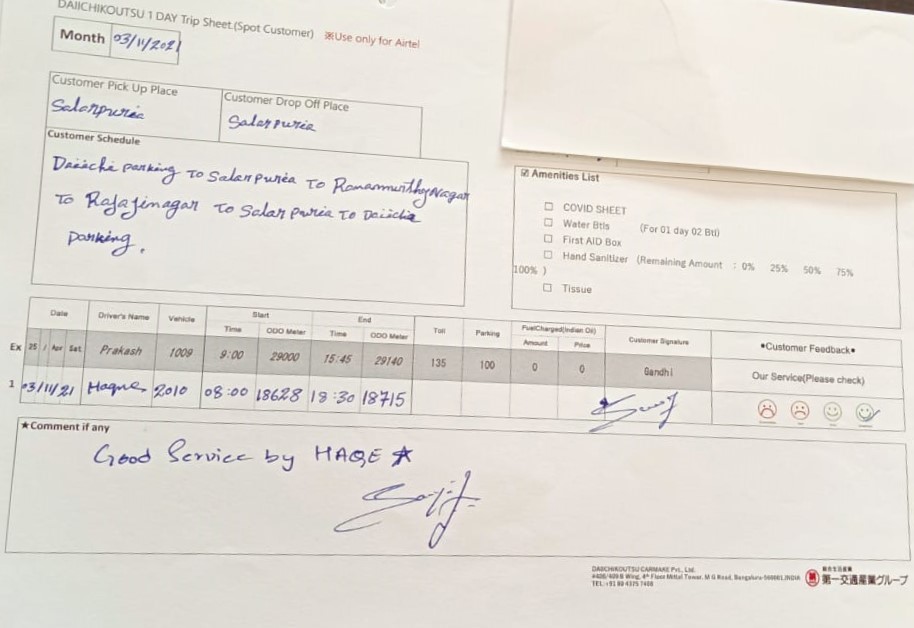 DAIICHIKOUTSU 1 DAY Trip Sheet.(Spot Customer) ※Use only for Airtel
Month 03/11/2021
Customer Pick Up Place
Salarpuria
Customer Drop Off Place
Salarpuria
Customer Schedule
Daiichi parking To Salarpuria To Ramamurthy Nagar
To Rajajinagar To Salarpuria To Daiichi
parking.
☑ Amenities List
☐ COVID SHEET
☐ Water Btls (For 01 day 02 Btl)
☐ First AID Box
☐ Hand Sanitizer (Remaining Amount : 0% 25% 50% 75%
100% )
☐ Tissue
Date Driver's Name Vehicle Start End Toll Parking FuelCharged(Indian Oil) Customer Signature ●Customer Feedback●
Time ODO Meter Time ODO Meter Amount Price
Ex 25 / Apr Sat Prakash 1009 9:00 29000 15:45 29140 135 100 0 0 Gandhi Our Service(Please check)
1 03/11/21 Haque 2010 08:00 18628 18:30 18715
★Comment if any
Good Service by HAQE ★
DAIICHIKOUTSU CARMAKE Pvt., Ltd.
#408/409 B Wing, 4th Floor Mittal Tower, M G Road, Bengaluru-560001,INDIA
TEL:+91 80 4375 7408
総合生活産業
第一交通産業グループ